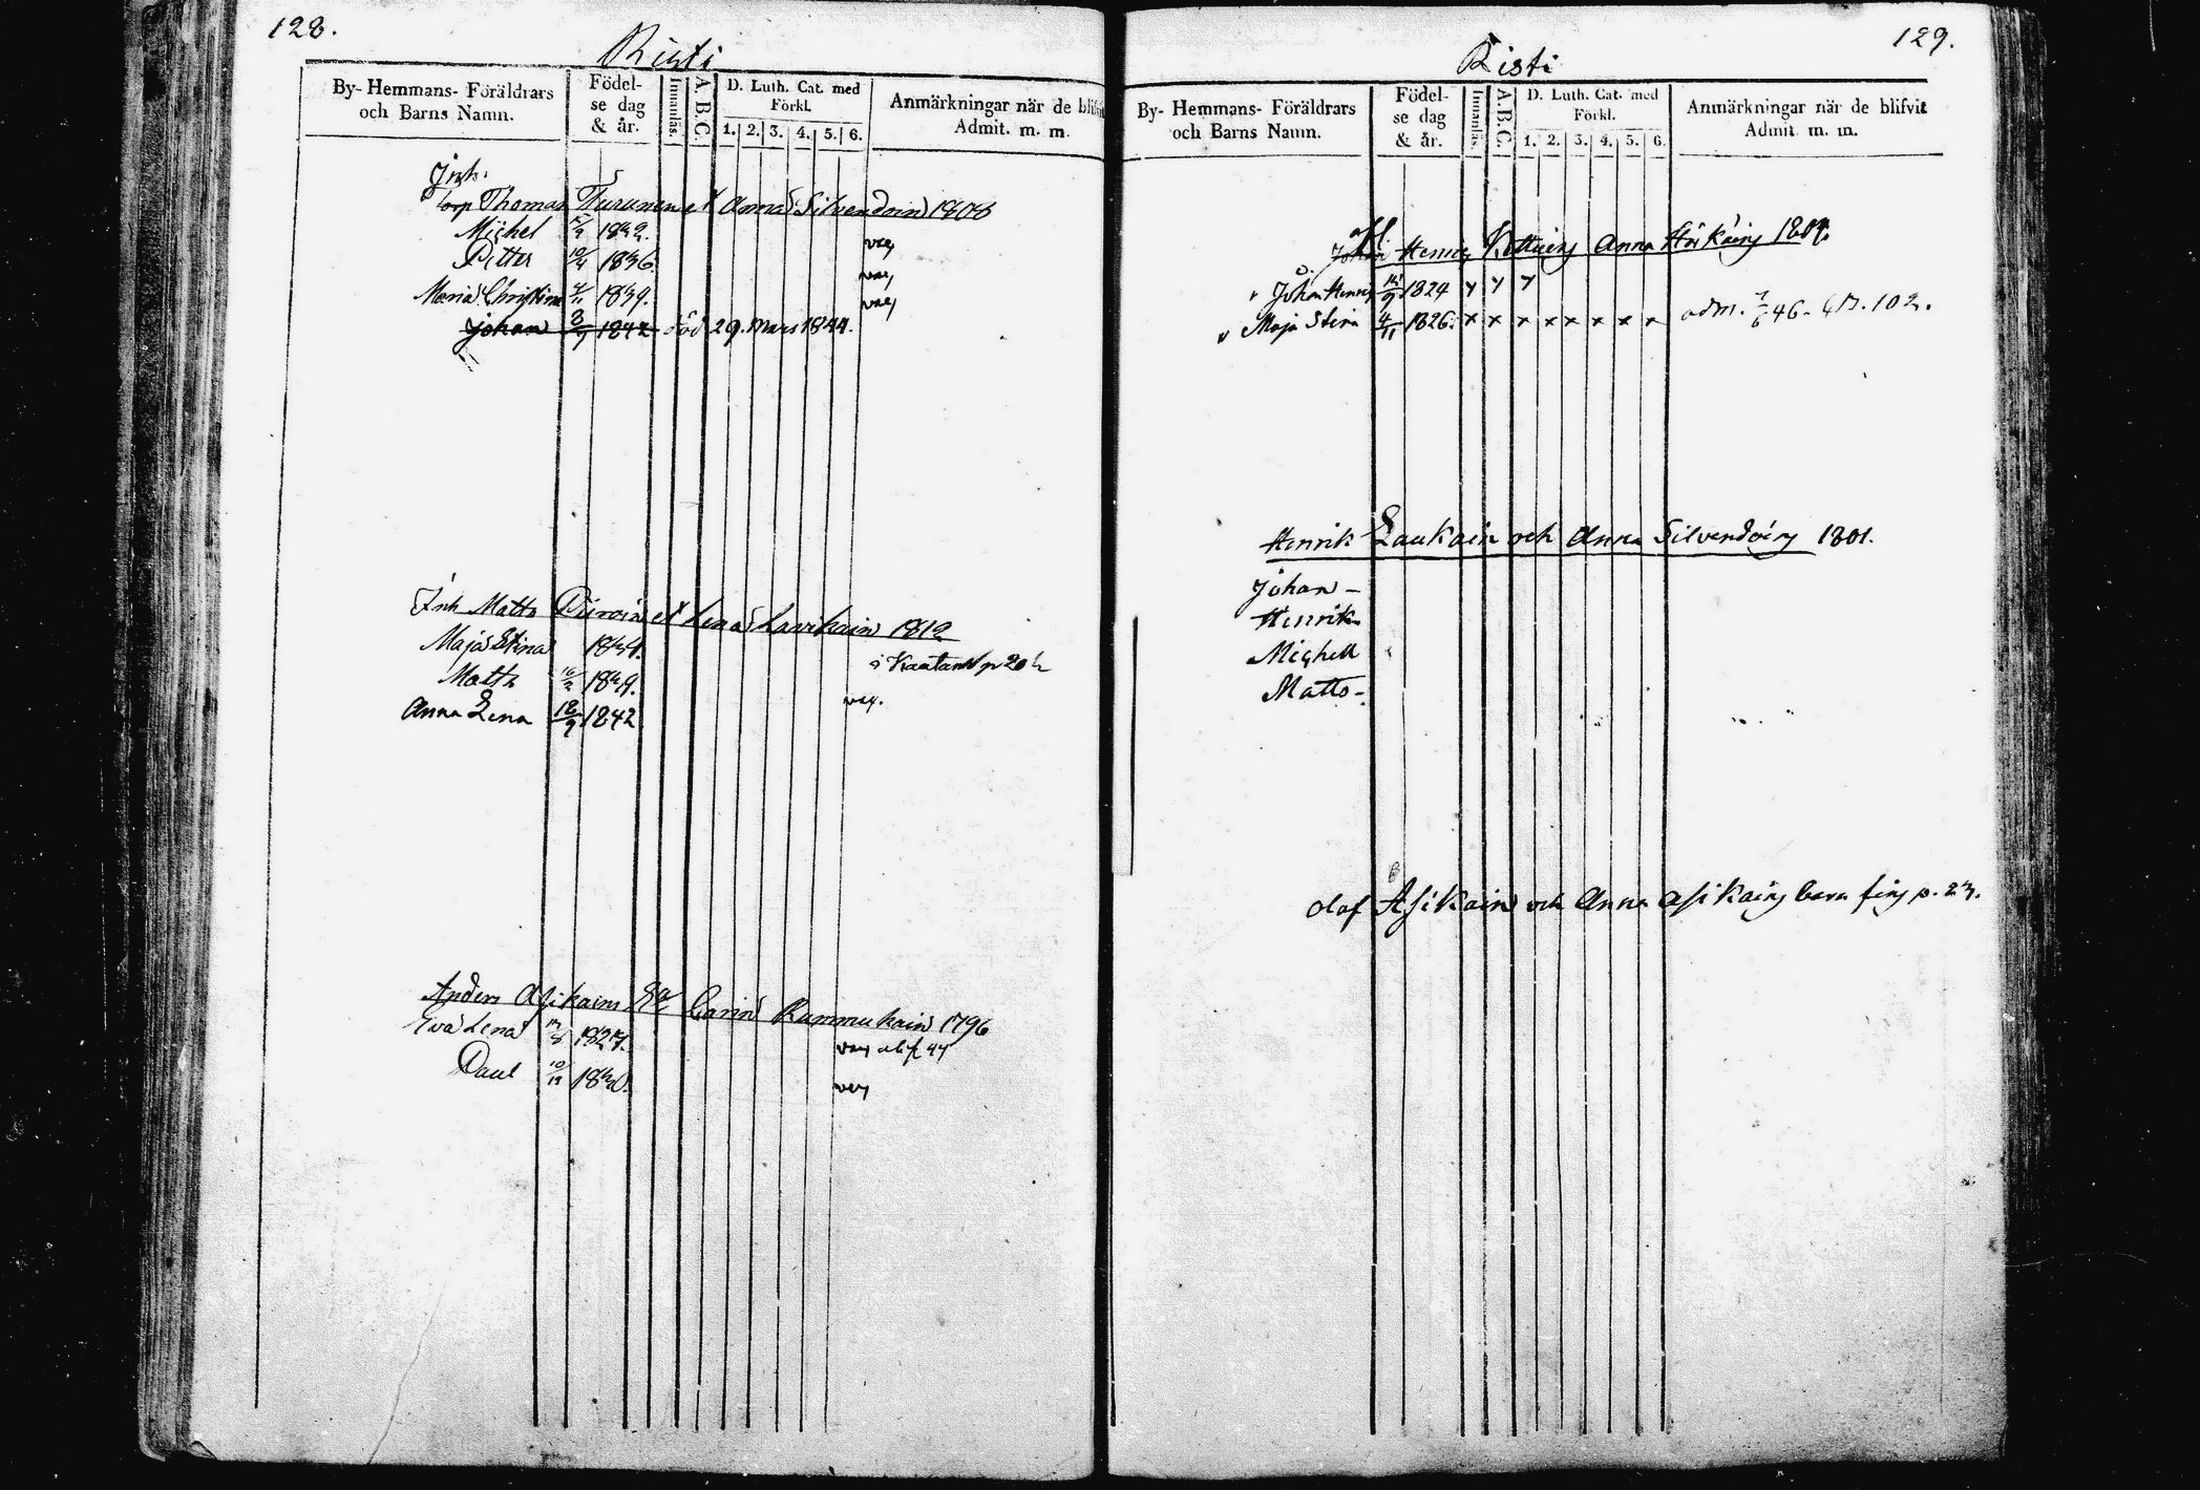 128.
Risti
By- Hemmans- Föräldrars och Barns Namn.
Födel- se dag & år.
Innanläs.
A.B.C.
D. Luth. Cat. med Förkl.
1. 2. 3. 4. 5. 6.
Anmärkningar när de blifvit Admit. m. m.
Inh.
Torp Thomas Turunen et Anna Silvendoin 1808
Michel 1832. vacc
Petter 10/4 1836 vacc
Maria Christina 1839. vacc
Johan 3/9 1842 död 29. Mars 1844.
Inh Matts Piiroin et Lena Laukain 1812
Maja Stina 1834. i Kaatam p 20
Matts 1839.
Anna Lena 18/9 1842 vacc.
Anders Asikain Carin Rummukain 1796
Eva Lena 1827. vacc
Paul 10 vacc
129.
Risti
By- Hemmans- Föräldrars och Barns Namn.
Födel- se dag & år.
Innanläs.
A.B.C.
D. Luth. Cat. med Förkl.
1. 2. 3. 4. 5. 6.
Anmärkningar när de blifvit Admit. m. m.
Henric Anna 1801.
Johan Henric 1824 y y y
Maja Stina 4/11 1826. x x x x x x x x adm. 7/6 46. 102.
Henrik Laukain och Anna Silvendoin 1801.
Johan -
Henrik -
Michell
Matts -
Olof Asikain och Anna Asikain barn fins p.